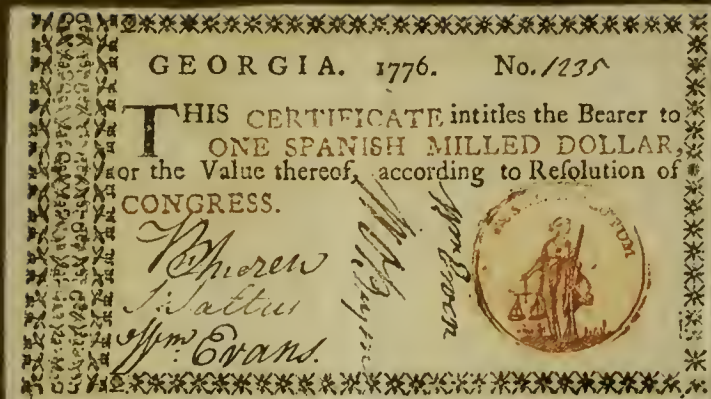 GEORGIA. 1776. No. 1235
THIS CERTIFICATE intitles the Bearer to
ONE SPANISH MILLED DOLLAR,
or the Value thereof, according to Reſolution of
CONGRESS.
Wm Evans.
Wm Ewen